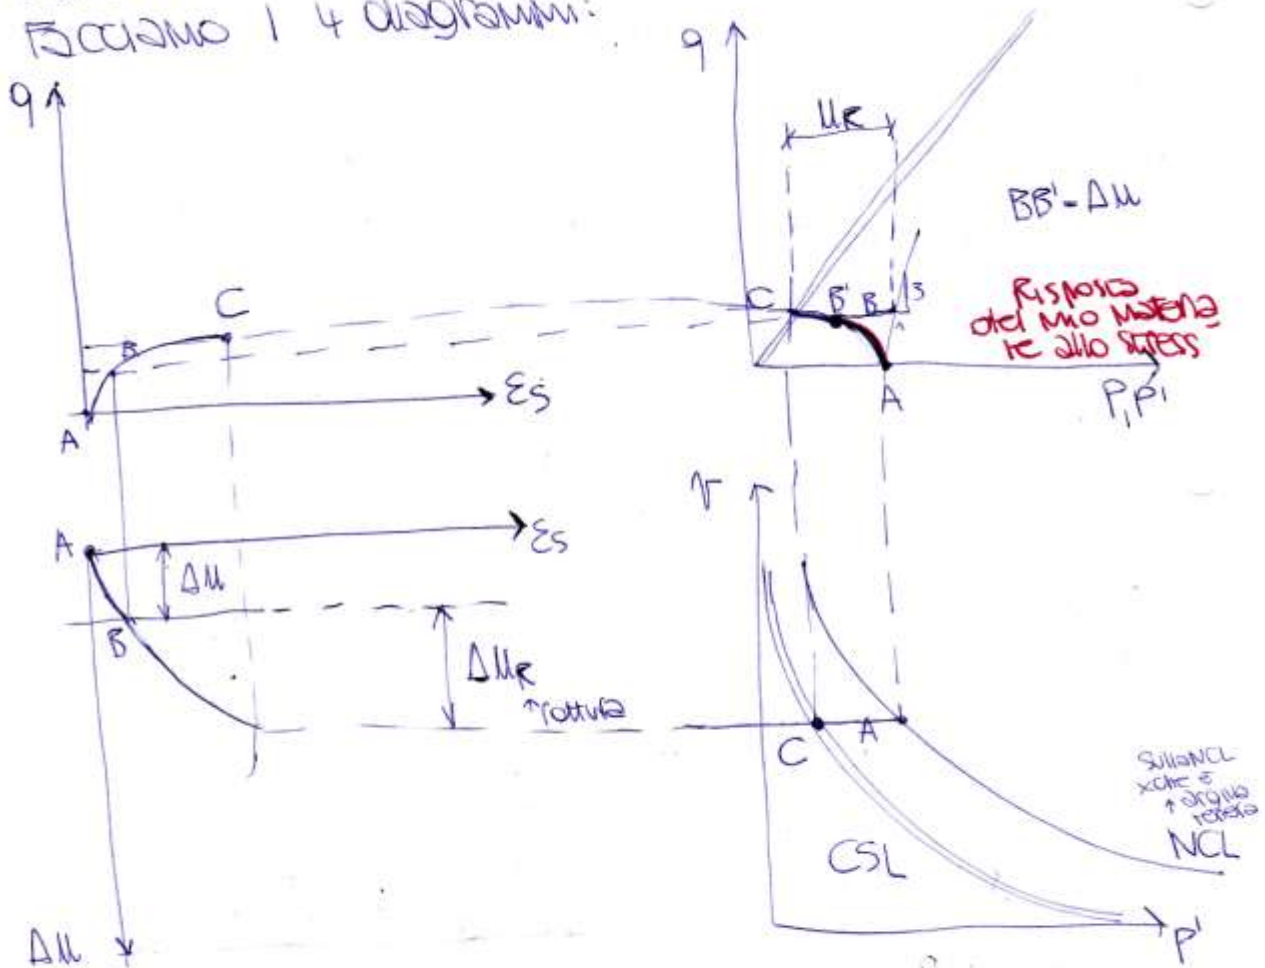 Facciamo i 4 diagrammi:
q
C
B
A
εs
A
εs
Δu
B
ΔuR
↑rottura
Δu
q
uR
BB'=Δu
C
B'
B
3
1
A
P,P'
Risposta
del mio materia
le allo stress
v
C
A
CSL
Sulla NCL
xché è
↑ argilla
tenera
NCL
P'